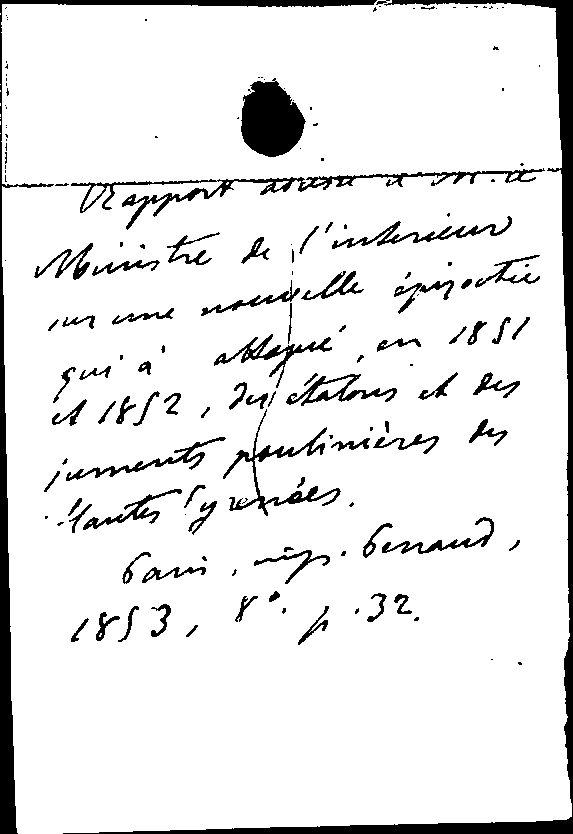 Rapport adressé à M. le
Ministre de l'intérieur
sur une nouvelle épizootie
qui à attaqué, en 1851
et 1852, des étalons et des
juments poulinières des
Hautes Pyrenées.
Paris, imp. Penaud,
1853, 8°. p. 32.